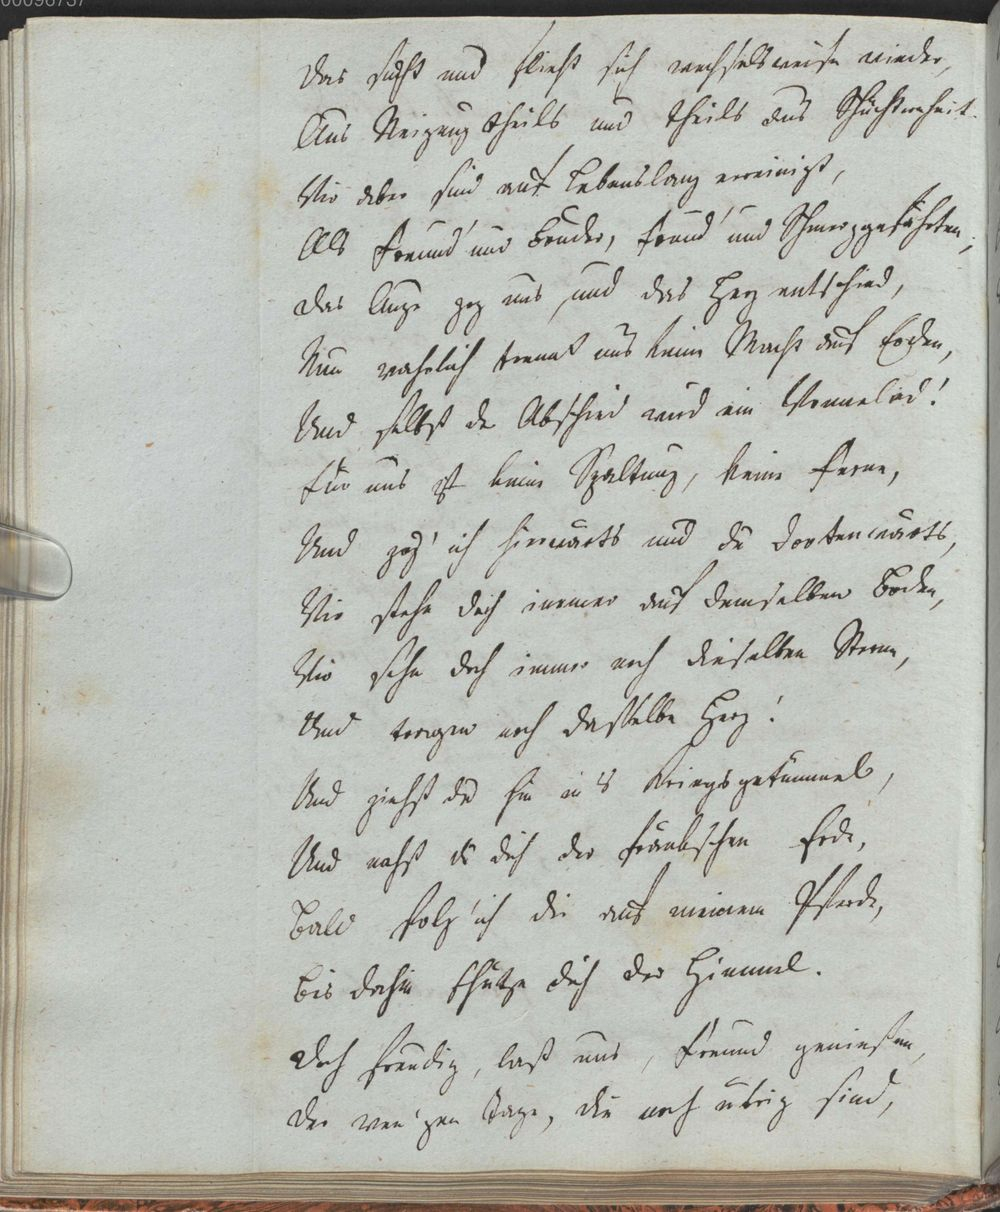 00096737
Das sucht und flieht sich wechselsweise wieder,
Aus Neigung theils und theils aus Schüchternheit.
Wir aber sind auf Lebenslang vereinigt,
Als Freund' und Brüder, Freud' und Schmerzgefährten,
Das Auge zog uns, und das Herz entschied,
Nun wahrlich trennt uns keine Macht auf Erden,
Und selbst der Abschied wird ein Wonnelied!
Für uns ist keine Spaltung, keine Ferne,
Und zög' ich hierwärts und du dortenwärts,
Wir stehn doch immer auf demselben Boden,
Wir sehn doch immer noch dieselben Sterne,
Und tragen noch dasselbe Herz!
Und ziehst du hin in's Kriegsgetümmel,
Und nahst du dich der fränkschen Erde,
Bald folg' ich dir auf meinem Pferde,
Bis dahin schütze dich der Himmel.
Doch freudig, laß uns, Freund genießen,
Der wen'gen Tage, die noch übrig sind,